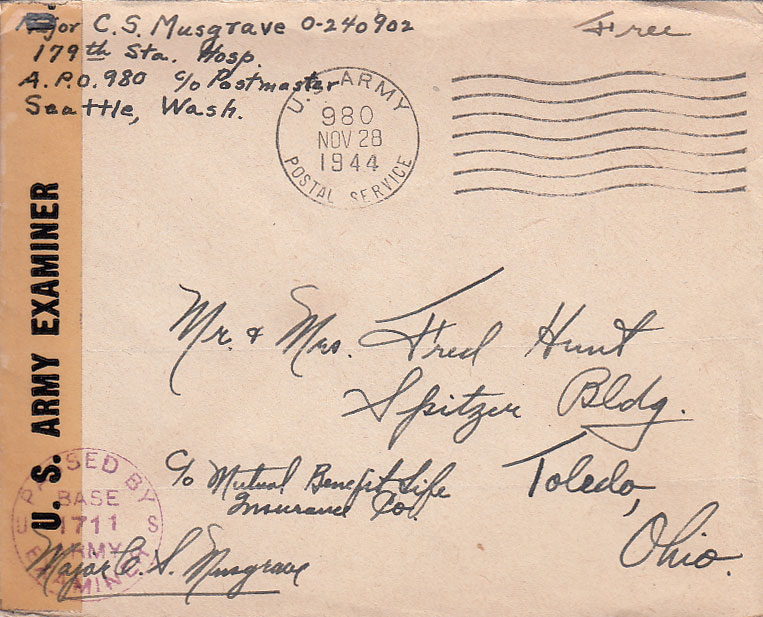 Major C. S. Musgrave O-240902
179th Sta. Hosp.
A.P.O. 980 c/o Postmaster
Seattle, Wash.
Free
U.S. ARMY
980
NOV 28
1944
POSTAL SERVICE
U. S. ARMY EXAMINER
Mr. & Mrs. Fred Hunt
Spitzer Bldg.
c/o Mutual Benefit Life
Insurance Co.
Toledo,
Ohio.
PASSED BY
BASE
U 1711 S
ARMY
EXAMINER
Major C. S. Musgrave